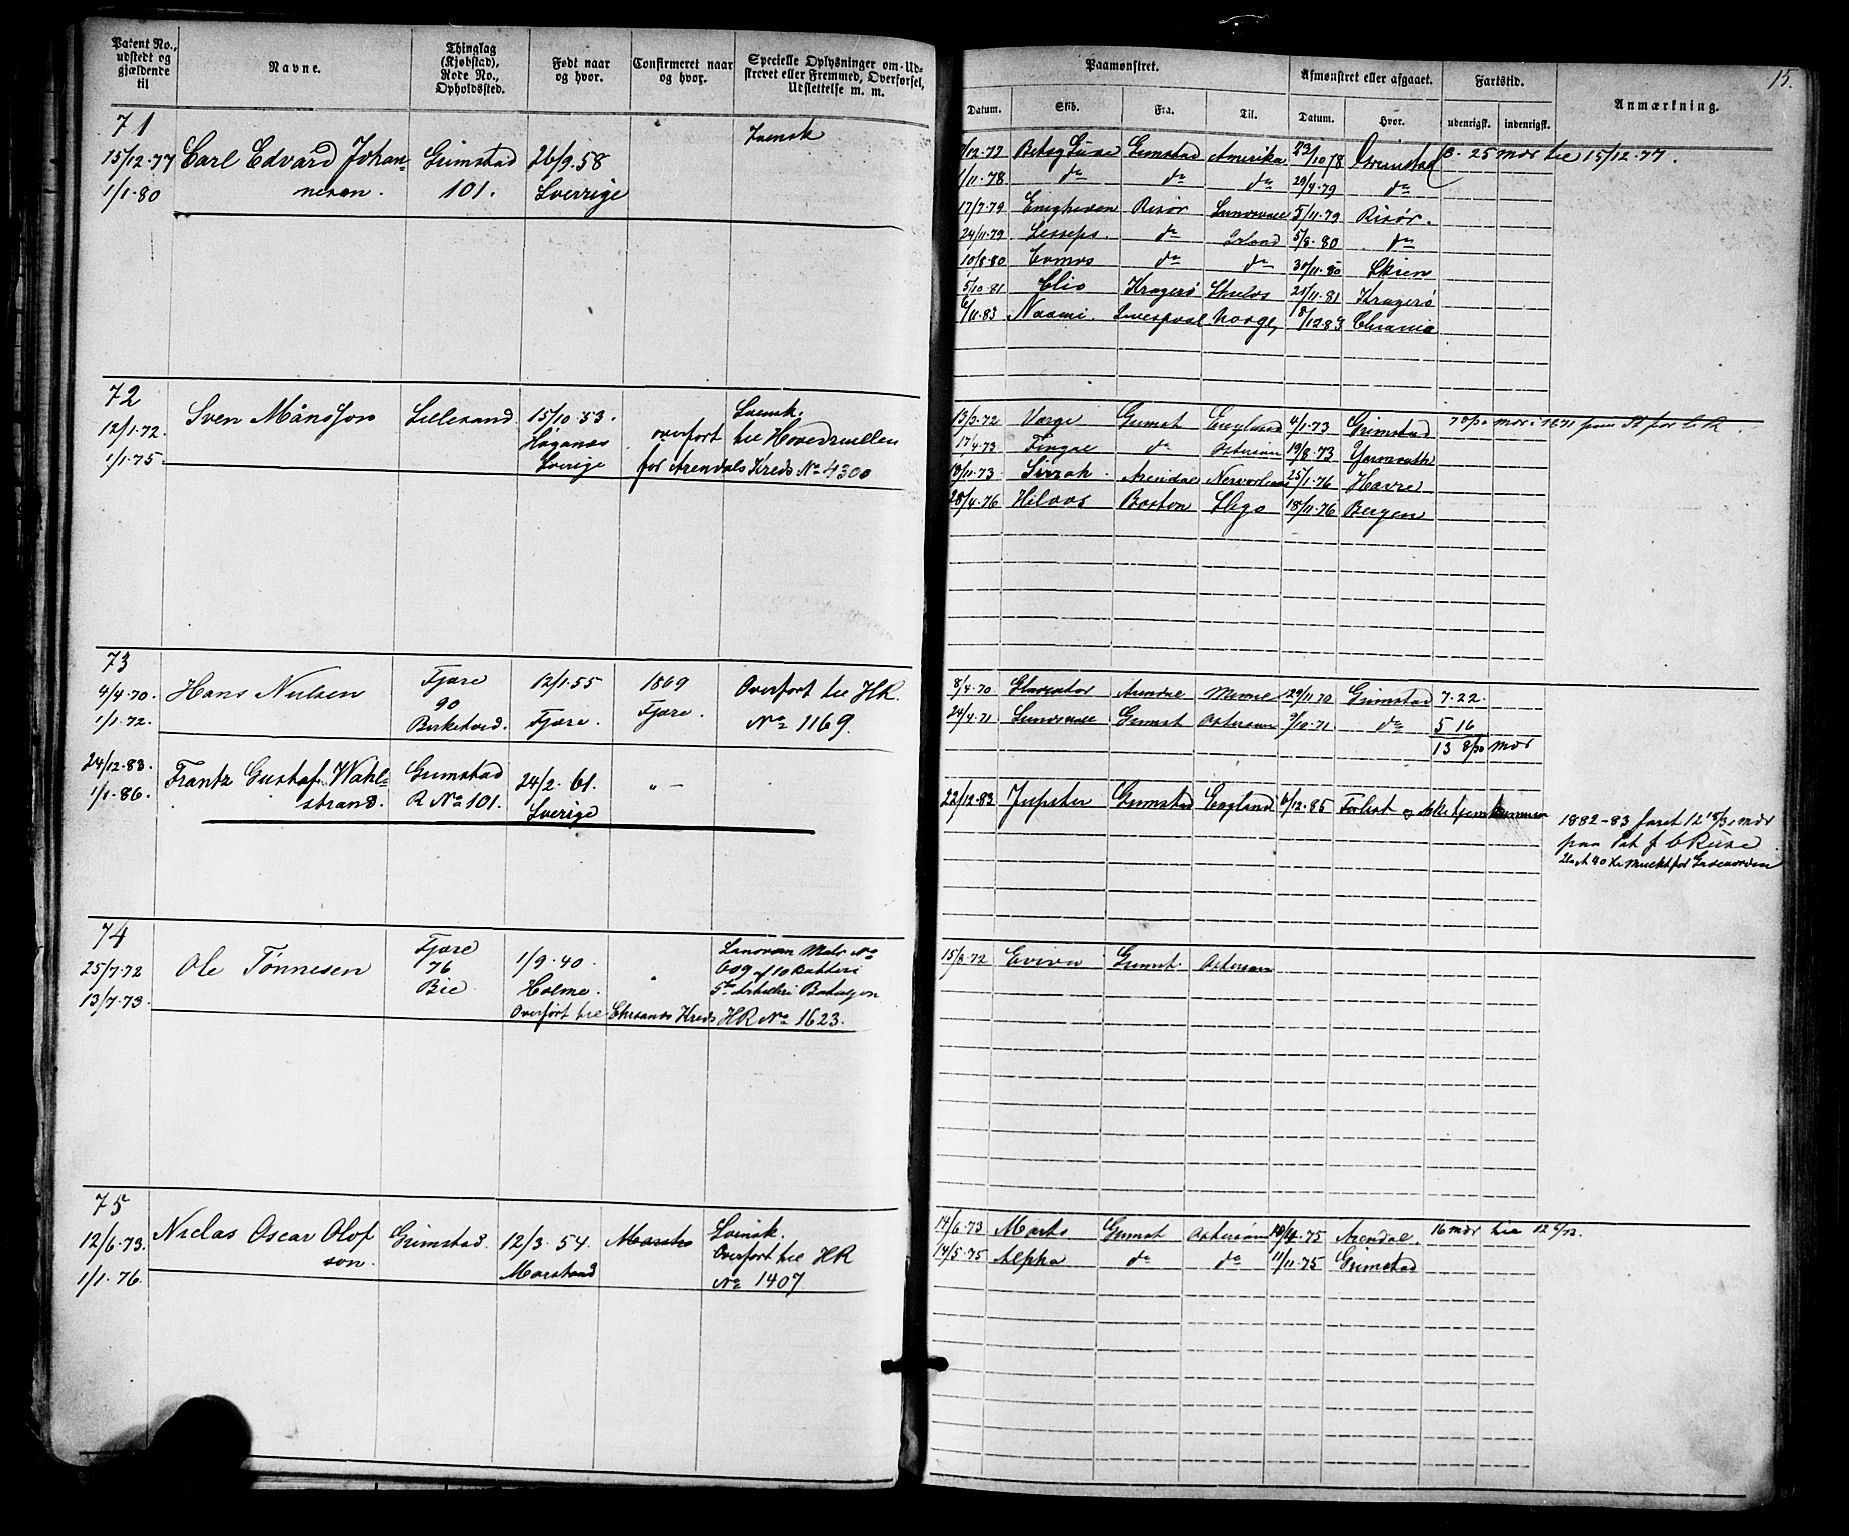 15.
Patent No., udstedt og gjældende til
Navne.
Thinglag (Kjøbstad), Rode No., Opholdssted.
Født naar og hvor.
Confirmeret naar og hvor.
Specielle Oplysninger om Udskrevet eller Fremmed, Overførsel, Udslettelse m. m.
Paamønstret.
Afmønstret eller afgaaet.
Fartstid.
Anmærkning.
Datum. Skib. Fra. Til. Datum. Hvor. udenrigsk. indenrigsk.
71
Svensk
15/12-77 Carl Edvard Johan- Grimstad 26/9-58
1/1-80 nesen. 101. Sverrige
/12-77 Grimstad Amerika 23/10 78 Grimstad 25 mdr til 15/12-77.
1/11-78 do do do 29/4-79 do
17/7-79 Risør 5/11-79 Risør.
24/11-79 Lesseps. do 5/8-80 do
10/8-80 do do 30/11-80 Skien
5/10-81 Clio Kragerø 25/11-81 Kragerø
6/11-83 Naomi. Liverpool Norge, 18/12 83
72
12/1-72. Sven Månsson Lillesand 15/10-53. Svensk.
1/1-75. Höganäs Sverige
overført til Hovedrullen
for Arendals Kreds No 4300
13/3-72 Varge Grimst England 4/1-73 Grimstad
17/4-73 Fingal do Østersøn 19/8-73 Yarmouth
18/11-73 Arendal 25/1-76 Havre
28/4-76 Helios Boston Sligo 18/11-76 Bergen
73
4/4-70. Hans Nielsen Fjære 12/1-55 1869 Overført til HR.
1/1-72. 90 Birketved. Fjære. Fjære. No 1169.
8/4-70 Gladiator Arendal 29/11 70 Grimstad 7-22.
24/4-71 Grimst Østersøen 9/10-71 do 5 16
13 8/30 mdr
24/12-83. Frantz Gustaf Wahl- Grimstad 24/2-61. "-
1/1-86. strand. R No 101. Sverige
22/12-83 Jupiter Grimstad England 6/12-85 Forlist og ikke hjemkommen
1882-83 faret 12 18/30 mdr
paa Pat f
74
25/7-72 Ole Tønnesen Fjære 1/9-40. "
13/7-73. 76 Bie Holme.
609 af 10 Batteri
5te Artilleri Bataljon
Overført til Chrsands Kreds HR No 1623.
15/8-72 Eviva Grimst. Østersøen
75
12/6-73. Niclas Oscar Olof- Grimstad. 12/3-54. Svensk.
1/1-76. son. Marstrand Overført til HR
No 1407.
14/6-73 Grimst Østersøen /4-75 Arendal. 16 mdr til 12 6/73.
14/5-75 Alpha do do 11/11-75 Grimstad